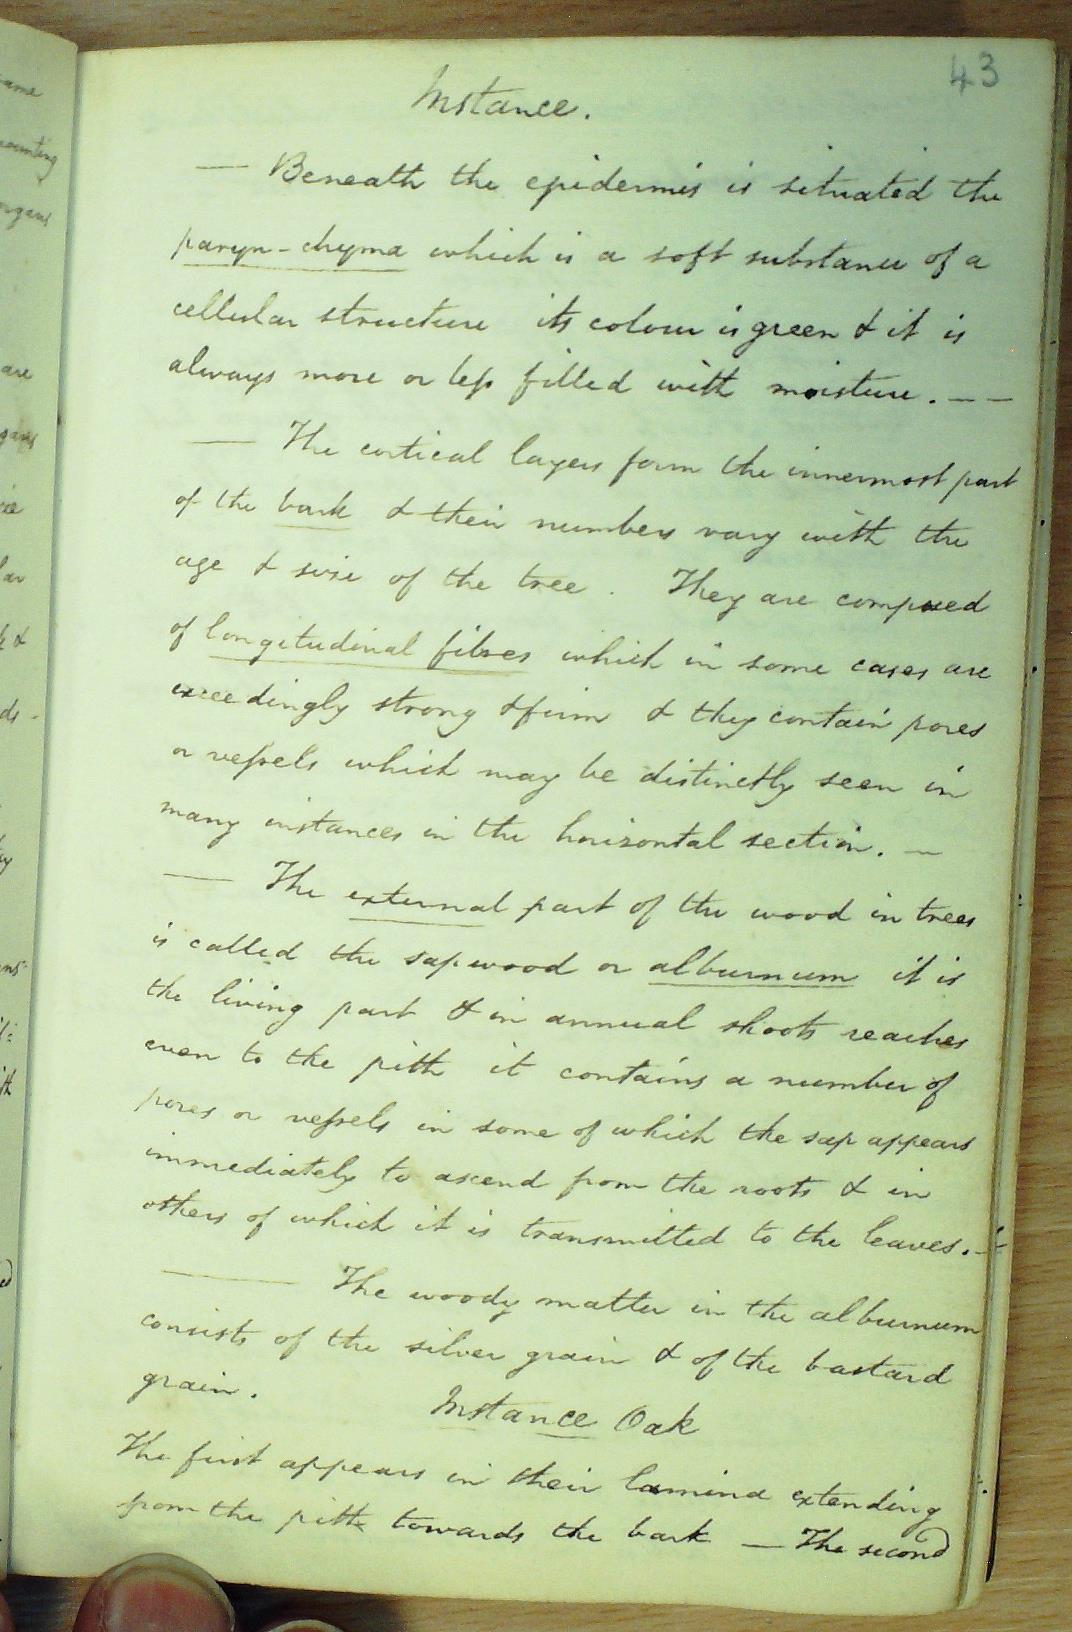 43
Instance.
— Beneath the epidermis is situated the
paryn-chyma which is a soft substance of a
cellular structure its colour is green & it is
always more or less filled with moisture. — —
— The cortical layers form the innermost part
of the bark & their numbers vary with the
age & size of the tree. They are composed
of longitudinal fibres which in some cases are
exceedingly strong & firm & they contain pores
or vessels which may be distinctly seen in
many instances in the horizontal section. —
— The external part of the wood in trees
is called the sapwood or alburnum it is
the living part & in annual shoots reaches
even to the pith it contains a number of
pores or vessels in some of which the sap appears
immediately to ascend from the roots & in
others of which it is transmitted to the leaves. —
— The woody matter in the alburnum
consists of the silver grain & of the bastard
grain.
Instance Oak
The first appears in their lamina extending
from the pith towards the bark — The second